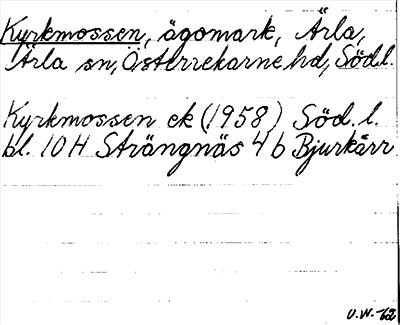 Kyrkmossen, ägomark, Ärla,
Ärla sn, Österrekarne hd, Södl.
Kyrkmossen ek (1958) Söd. l.
bl. 10 H Strängnäs 4 b Bjurkärr
U.W.-62